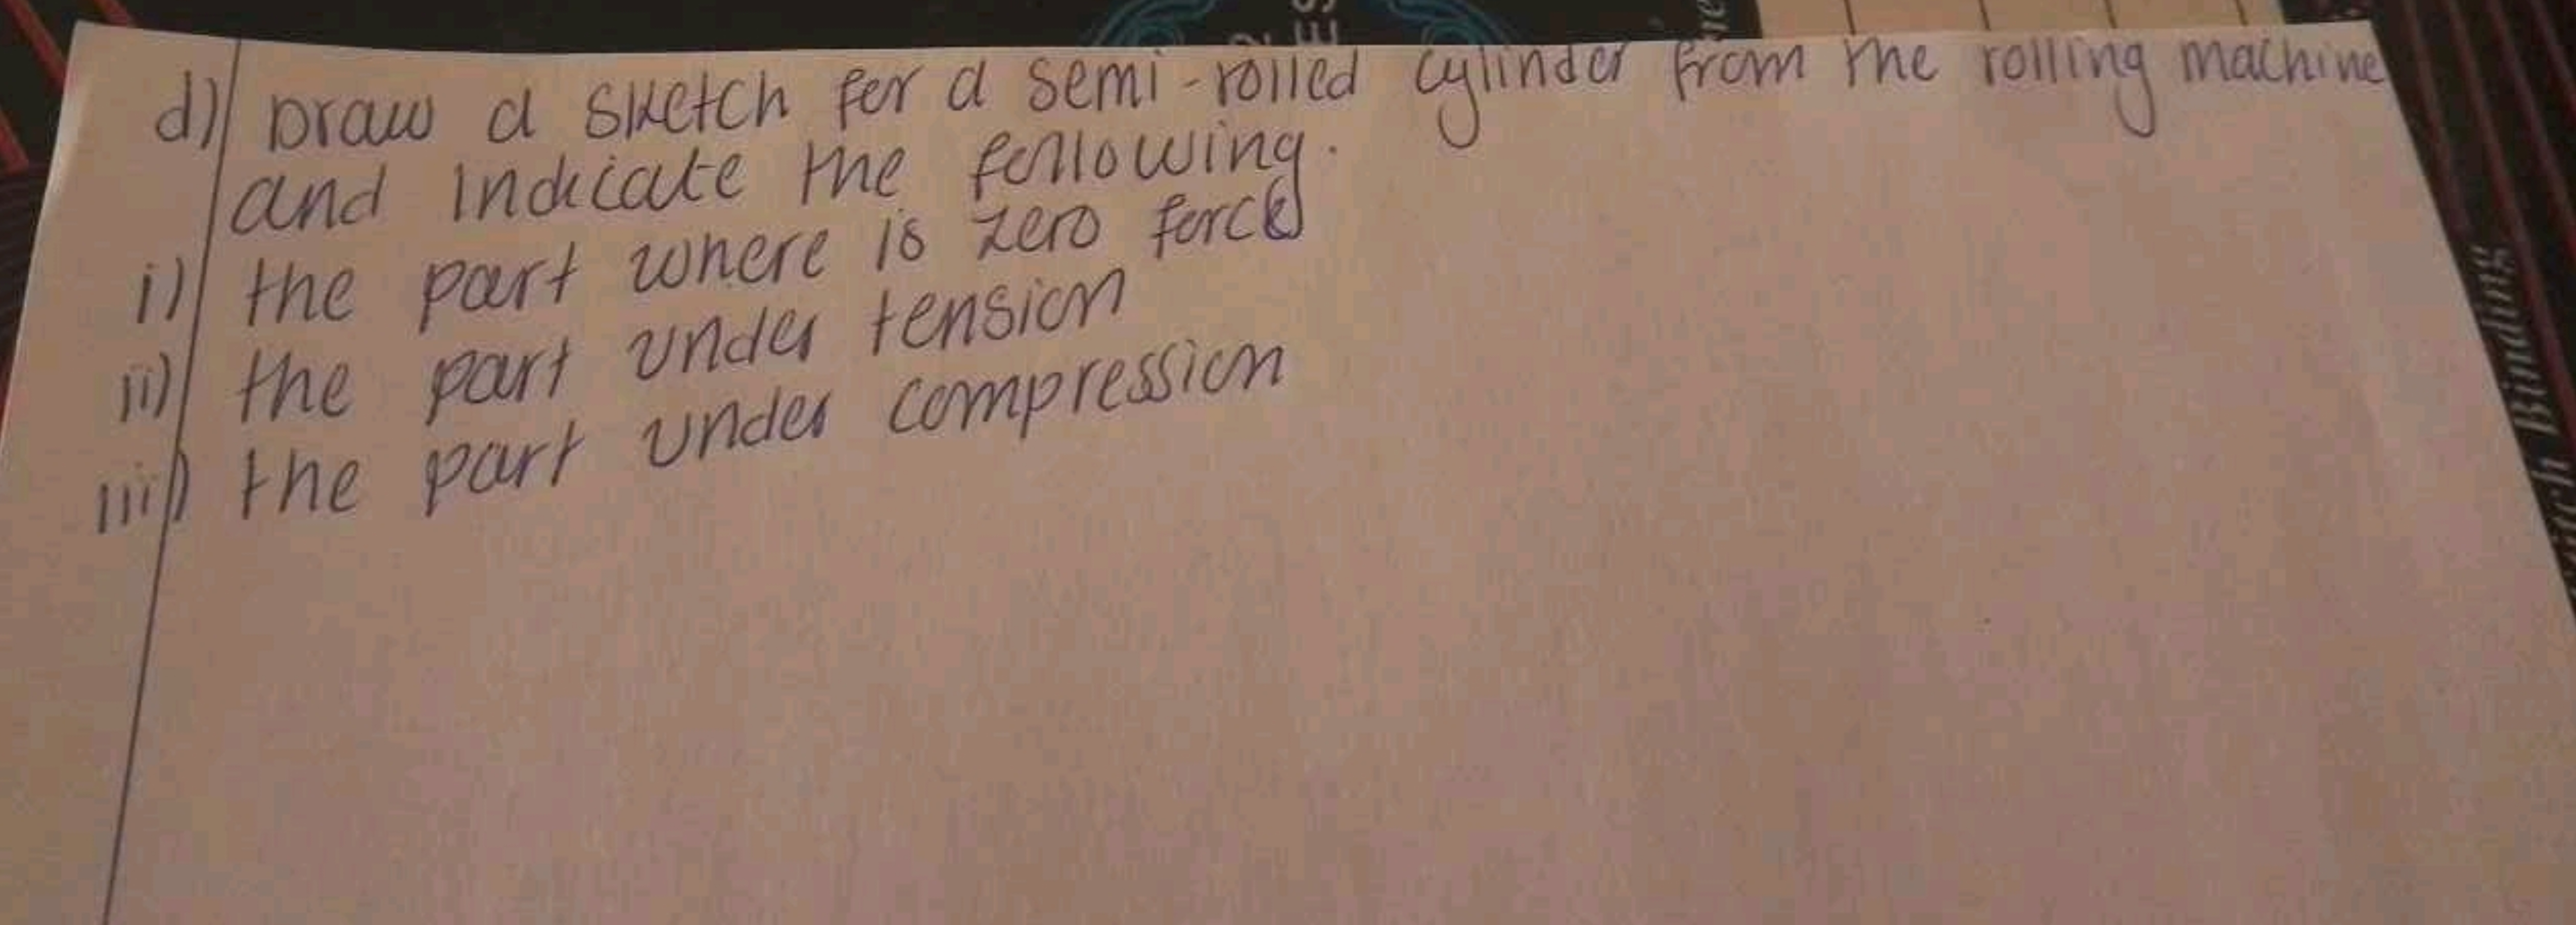 d) Draw a sketch for a semi-rolled cylinder from the rolling machine
and indicate the following.
i) the part where is zero force
ii) the part under tension
iii) the part under compression
Binding